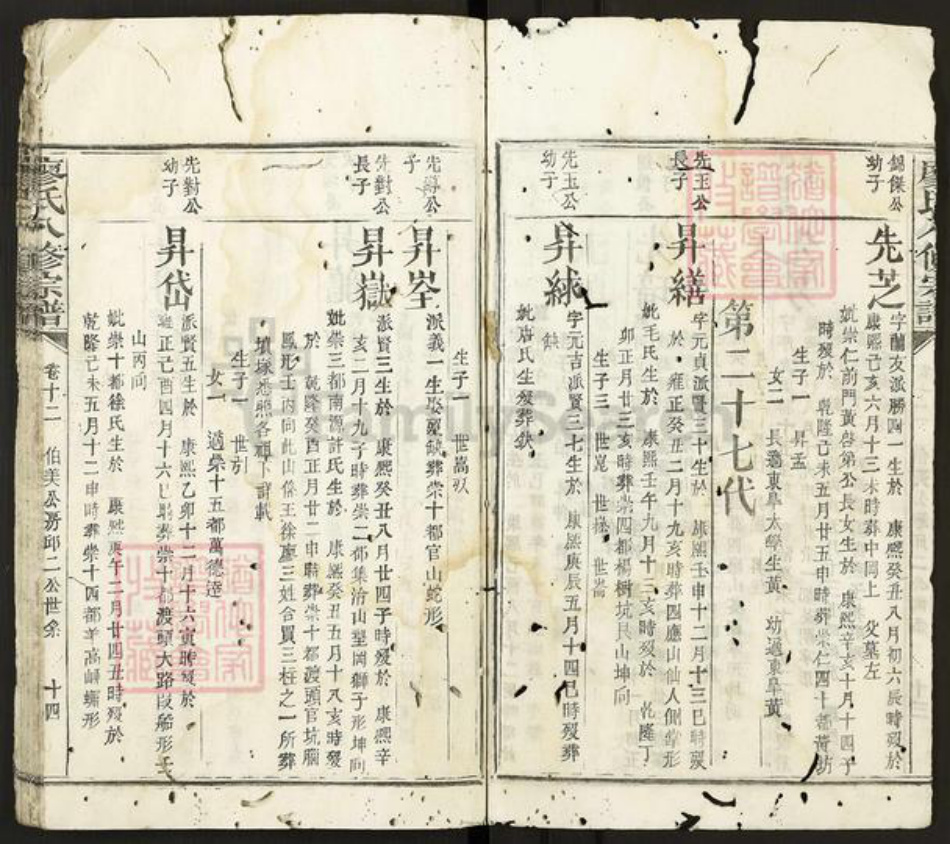 錦傑公
幼子
先芝
字蘭友派勝四一生於 康熙癸丑八月初六辰時歿於
康熙己亥六月十三未時葬中岡上 父墓左
妣崇仁前門黃啓第公長女生於 康熙辛亥十月十四子
時歿於 乾隆己未五月廿五申時葬崇仁四十都
生子一 昇孟
女二 長適東阜太學生黃 幼適東阜黃
第二十七代
先玉公
長子
昇繕
字元貞派賢三十生於 康熙壬申十二月十三巳時歿
於 雍正癸丑二月十九亥時葬四應山仙人側掌形
妣毛氏生於 康熙壬午九月十三亥時歿於 乾隆丁
卯正月廿三亥時葬崇四都楊樹坑艮山坤向
生子三 世崑 世 世崙
先玉公
幼子
昇絿
字元吉派賢三七生於 康熙庚辰五月十四巳時歿葬
缺
妣唐氏生歿葬缺
生子一 世嵩
先 公
子
昇峑
派義一生娶歿缺葬崇十都官山蛇形
先對公
長子
昇嶽
派賢三生於 康熙癸丑八月廿四子時歿於 康熙辛
亥二月十九子時葬崇二都集冶山墾岡獅子形坤向
妣崇三都南源許氏生於 康熙癸丑五月十八亥時歿
於 乾隆癸酉正月廿二申時葬崇十都渡頭官坑腦
鳳形壬丙向此山係王徐廖三姓合買三柱之一所葬
墳塚悉照各裔下詳載
生子一 世引
女一 適崇十五都萬德逵
先對公
幼子
昇岱
派賢五生於 康熙乙卯十二月十六寅時歿於
雍正己酉四月十六巳時葬崇十都渡頭大路塅船形壬
山丙向
妣崇十都徐氏生於 康熙庚午二月廿四丑時歿於
乾隆己未五月十二申時葬崇十四都羊高 獅形
廖氏八修宗譜
卷十二 伯美公房邱二公世系 十四